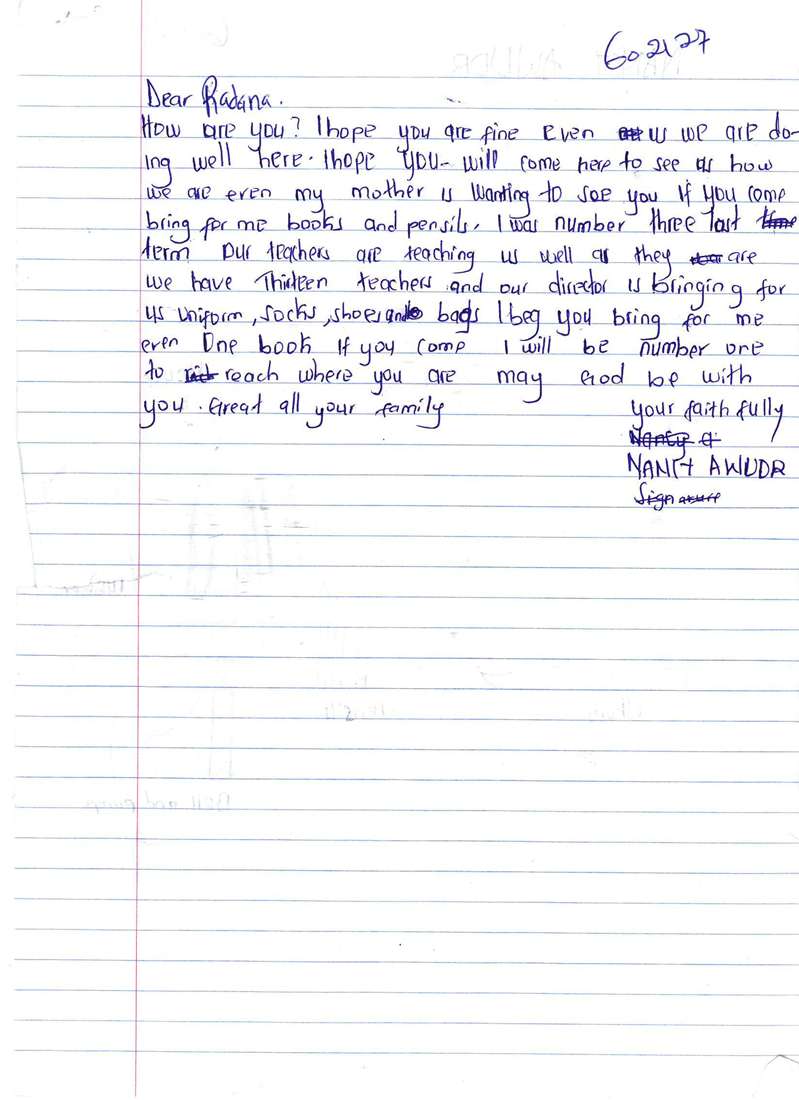 602127
Dear Radana.
How are you? I hope you are fine even us we are do-
ing well here. I hope you- will come here to see as how
we are even my mother is wanting to see you if you come
bring for me books and pensils. I was number three last time
term Our teachers are teaching us well as they are
we have Thirteen teachers and our director is bringing for
us uniform, socks, shoes and bags I beg you bring for me
even One book if you come I will be number one
to reach where you are may God be with
you. Great all your family
your faith fully
Nancy a
NANCY AWUDR
Signature